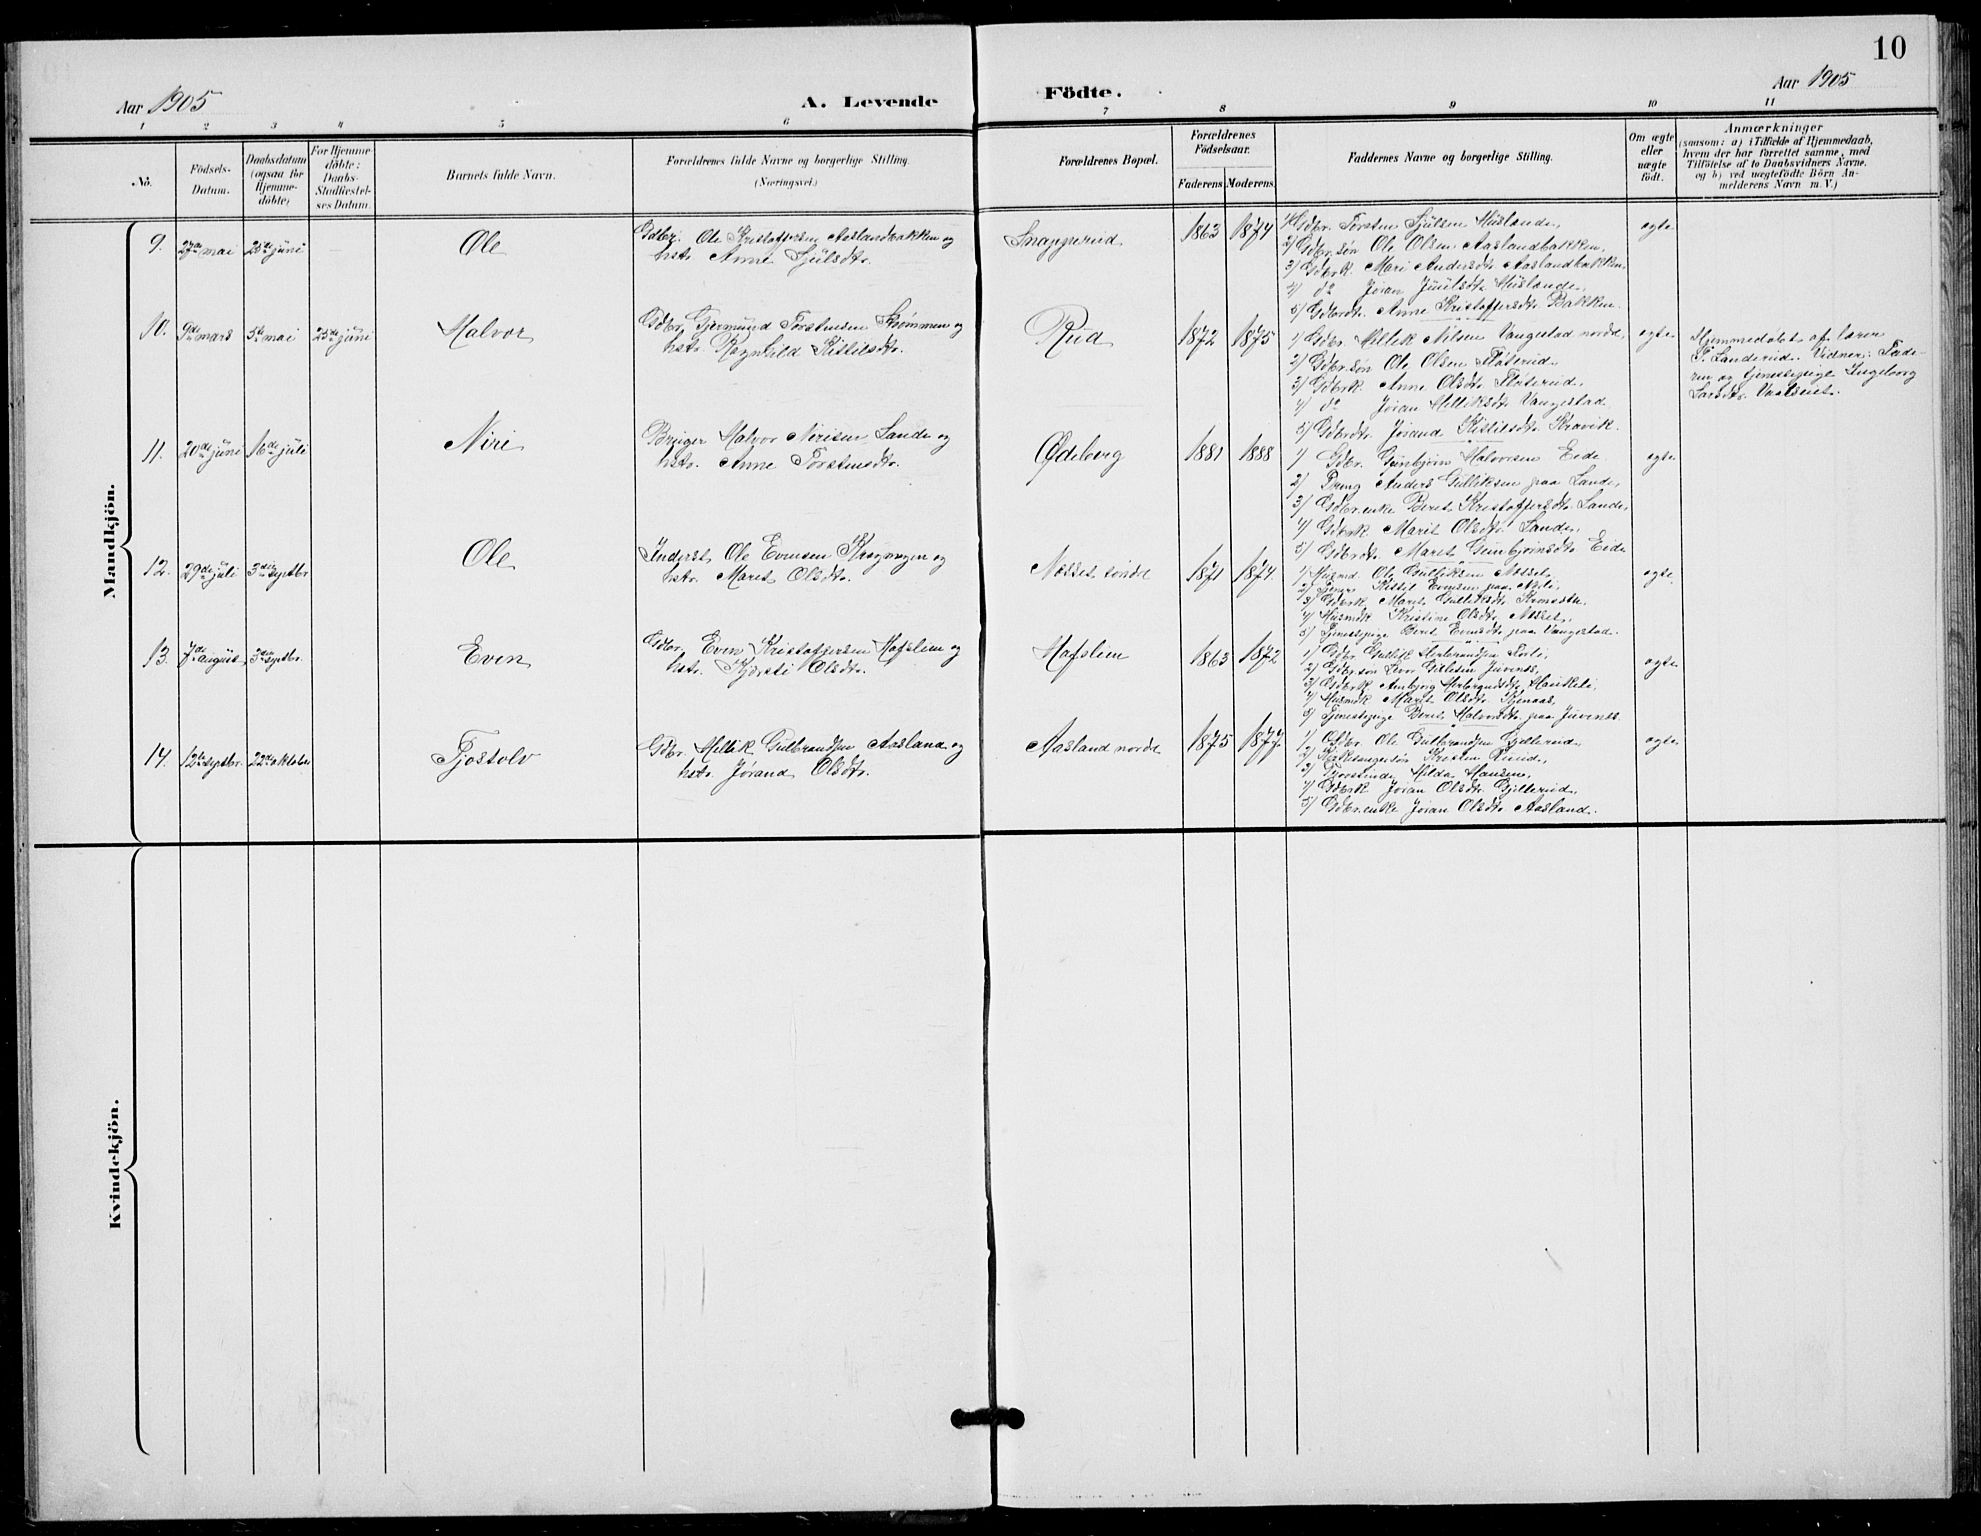 10
Aar 1905
A. Levende
Födte.
Aar 1905
1 2 3 4 5 6 7 8 9 10 11
No.
Födsels-
Datum.
Daabsdatum
(ogsaa for
Hjemme-
döbte)
For Hjemme-
döbte:
Daabs-
Stadfæstel-
ses Datum.
Barnets fulde Navn.
Forældrenes fulde Navne og borgerlige Stilling.
(Næringsvei.)
Forældrenes Bopæl.
Forældrenes
Födselsaar.
Faderens Moderens
Faddernes Navne og borgerlige Stilling.
Om ægte
eller
uægte
födt.
Anmærkninger
(saasom: a) i Tilfælde af Hjemmedaab,
hvem der har forrettet samme, med
Tilföielse af to Daabsvidners Navne,
og b) ved uægtefödte Börn An-
melderens Navn m. V.)
Mandkjön.
9. 27de mai 25de juni Ole
Gdbr. Ole Kristoffersen Aaslandbakken og
hstr. Anne Sjulsdtr.
Snapperud 1863 1874
1) Gdbr. Torsten Sjulsen Husland,
2) Gdbr.søn Ole Olsen Aaslandbakken,
3) Gdbrk. Mari Andersdtr. Aaslandbakken,
4) do Jøran Juulsdtr. Husland,
5) Gdbrdtr. Anne Kristoffersdtr. Bakken.
egte
10. 9de mars 5te mai 25de juni Halvor
Gdbr. Gjermund Torstensen Strømmen og
hstr. Ragnhild Kittilsdtr.
Rud 1872 1875
1) Gdbr. Hellik Nilsen Vangestad nordre,
2) Gdbr.søn Ole Olsen Fløterud,
3) Gdbrk. Anne Olsdtr. Fløterud,
4) do Jøran Helliksdtr. Vangestad
5) Gdbrdtr. Jørand Kittilsdtr. Kravik.
egte
Hjemmedøbt af lærer
P. Landerud. Vidner: Fade-
ren og tjenestepige Ingeborg
Larsdtr.
11. 20de juni 16de juli Niri
Bruger Halvor Nirisen Lande og
hstr. Anne Torstensdtr.
Ødeberg 1881 1888
1) Gdbr. Gunbjørn Halvorsen Eide
2) Dreng Anders Gulliksen paa Lande,
3) Gdbr.enke Berit Kristoffersdtr. Lande,
4) Gdbrk. Marit Olsdtr. Lande,
5) Gdbrdtr. Marit Gunbjørnsdtr. Eide
egte
12. 29de juli 3die septbr. Ole
Inderst Ole Evensen og
hstr. Marit Olsdtr.
Næsset søndre 1871 1874
1) Husmd. Ole Gulliksen Næsset,
2) Kittil Evensen paa
3) Gdbrk. Marit Gulliksdtr.
4) Husmdk. Kristine Olsdtr. Næsset,
5) Tjenestepige Berit Evensdtr. paa Vangestad.
egte
13. 7de august 3die septbr. Even
Gdbr. Even Kristoffersen Hafslien og
hstr. Kjersti Olsdtr.
Hafslien 1863 1872
1) Gdbr. Gullik Herbrandsen
2) Gdbr.søn Juvenes,
3) Gdbrk. Ambjørg Herbrandsdtr.
4) Husmdk. Marit Olsdtr.
5) Tjenestepige Berit Halvorsdtr. paa Juvenes.
egte
14. 12te septbr. 22de oktober Tjostolv
Gdbr. Hellik Gulbrandsen Aasland og
hstr. Jørand Olsdtr.
Aasland nordre 1875 1877
1) Gdbr. Ole Gulbrandsen Gjellerud,
2) Kirkesangersøn Kristen Ruud,
3) Hilda Hansen,
4) Gdbrk. Jøran Olsdtr. Gjellerud,
5) Gdbr.enke Jøran Olsdtr. Aasland.
egte
Kvindekjön.